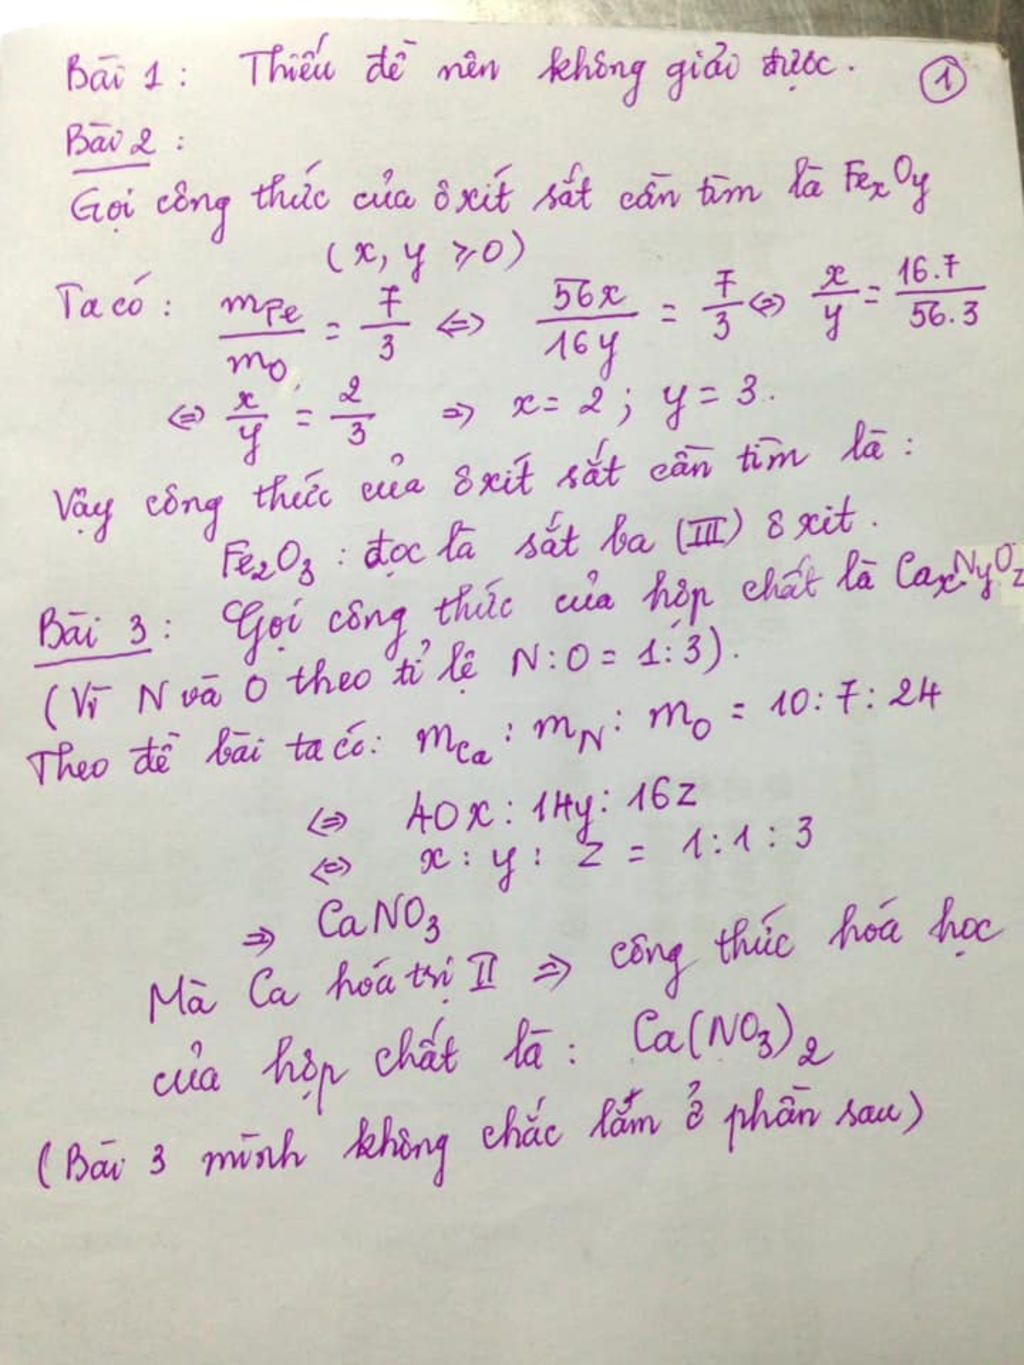 Bài 1: Thiếu đề nên không giải được. ①
Bài 2:
Gọi công thức của ôxít sắt cần tìm là FexOy
(x, y ≥ 0)
Ta có: mFe/mO = 7/3 ⇔ 56x/16y = 7/3 ⇔ x/y = 16.7/56.3
⇔ x/y = 2/3 ⇒ x = 2; y = 3.
Vậy công thức của ôxít sắt cần tìm là:
Fe2O3: đọc là sắt ba (III) ôxit.
Bài 3: Gọi công thức của hợp chất là CaxNyOz
(Vì N và O theo tỉ lệ N:O = 1:3).
Theo đề bài ta có: mCa : mN : mO = 10:7:24
⇔ 40x : 14y : 16z
⇔ x : y : z = 1:1:3
⇒ CaNO3
Mà Ca hóa trị II ⇒ công thức hóa học
của hợp chất là: Ca(NO3)2
(Bài 3 mình không chắc lắm ở phần sau)